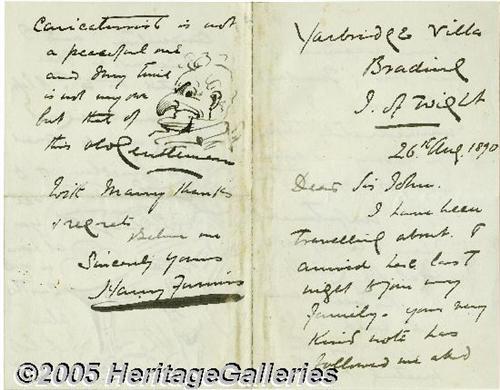 Yarbridge Villa
Brading
I. of Wight
26th Aug. 1890
Dear Sir John.
I have been
travelling about. I
arrived here last
night to join my
family. your very
kind note has
followed me and
Caricaturist is not
a peaceful one
and my time
is not my own
but that of
this old Gentleman
With Many thanks
& regrets
Believe me
Sincerely yours
Harry Furniss
©2005 HeritageGalleries